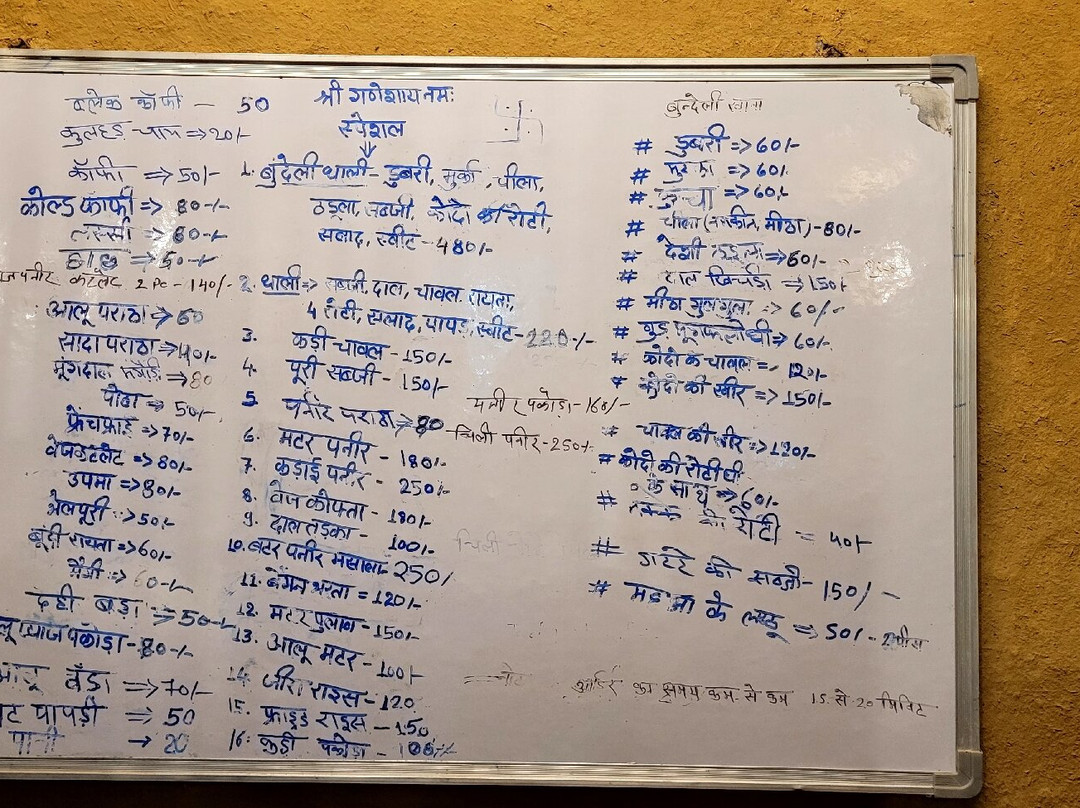 श्री गणेशाय नमः
स्पेशल
ब्लेक कॉफी - 50
कुलहड चाय => 20/-
कॉफी => 50/-
कोल्ड कॉफी => 80-/-
लस्सी => 60-/-
छाछ => 50-/-
पनीर कटलेट 2 Pc - 140/-
आलू पराठा => 60
सादा पराठा => 40/-
मूंगदाल => 80
पोहा => 50/-
फ्रेंचफ्राई => 70/-
वेजकटलेट => 80/-
उपमा => 80/-
भेलपूरी => 50/-
बूंदी रायता => 60/-
मैगी => 60-/-
दही बड़ा => 50-/-
प्याज पकोड़ा - 80-/-
वँडा => 70/-
पापड़ी => 50
पानी -> 20
1. बुंदेली थाली - डुबरी, मुर्का, चीला,
ठडूला, सब्जी, कोदो की रोटी,
सलाद, स्वीट - 480/-
2. थाली => सब्जी, दाल, चावल, रायता,
4 रोटी, सलाद, पापड, स्वीट - 220-/-
3. कड़ी चावल - 150/-
4. पूरी सब्जी - 150/-
5. पनीर पराठा => 80
6. मटर पनीर - 180/-
7. कड़ाई पनीर - 250/-
8. वेज कोफ्ता - 180/-
9. दाल तड़का - 100/-
10. बटर पनीर मसाला - 250/
11. बेंगन भरता = 120/-
12. मटर पुलाव - 150/-
13. आलू मटर - 100/-
14. जीरा राइस - 120
15. फ्राइड राइस - 150
16. कड़ी पकोड़ा - 100-/-
पनीर पकोड़ा - 160/-
चिली पनीर - 250/-
बुन्देली खाना
# डुबरी => 60/-
# मुरका => 60/-
# => 60/-
# चीला (नमकीन, मीठा) - 80/-
# देशी => 60/-
# दाल खिचडी => 150/-
# मीठा गुलगुला => 60/-
# गुड़ मूंगफली घी => 60/-
# कोदो के चावल = 120/-
# कोदो की खीर => 150/-
# चावल की खीर => 120/-
# कोदो की रोटी घी
के साथ => 60/-
# की रोटी = 40/-
# गटटे की सब्जी - 150/-
# महुआ के लड्डू => 50/- 2 पीस
नोट आर्डर का समय कम से कम 15 से 20 मिनिट